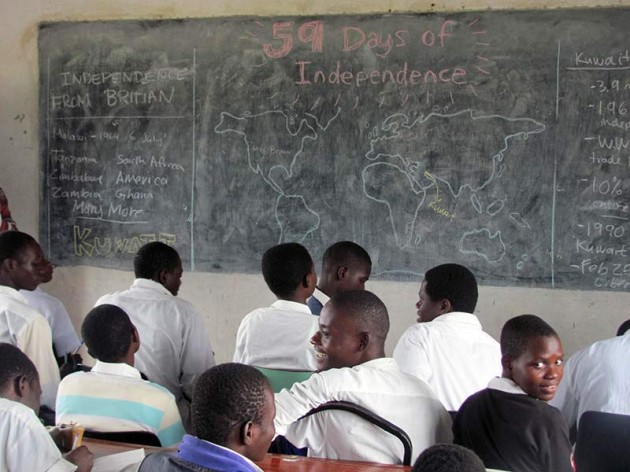 59 Days of
Independence
INDEPENDENCE
FROM BRITIAN
Malawi - 1964 6 July
Tanzania South Africa
Zimbabwe America
Zambia Ghana
Many More
KUWAIT
Kuwait
Kuwait
- 3.9
- 196
indepen
- W.W
trade
- 10%
- 1990
Kuwait
- Feb 25